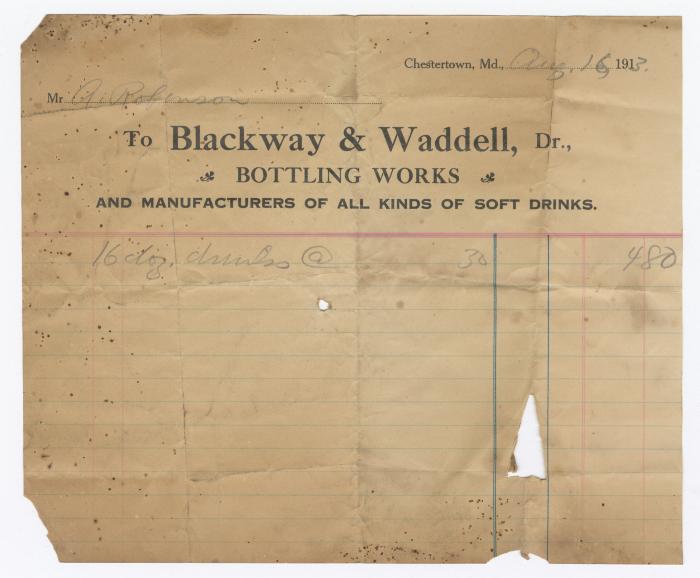 Chestertown, Md., Aug. 16, 1913.
Mr A. Robinson
To Blackway & Waddell, Dr.,
BOTTLING WORKS
AND MANUFACTURERS OF ALL KINDS OF SOFT DRINKS.
16 doz. drinks @ 30 480